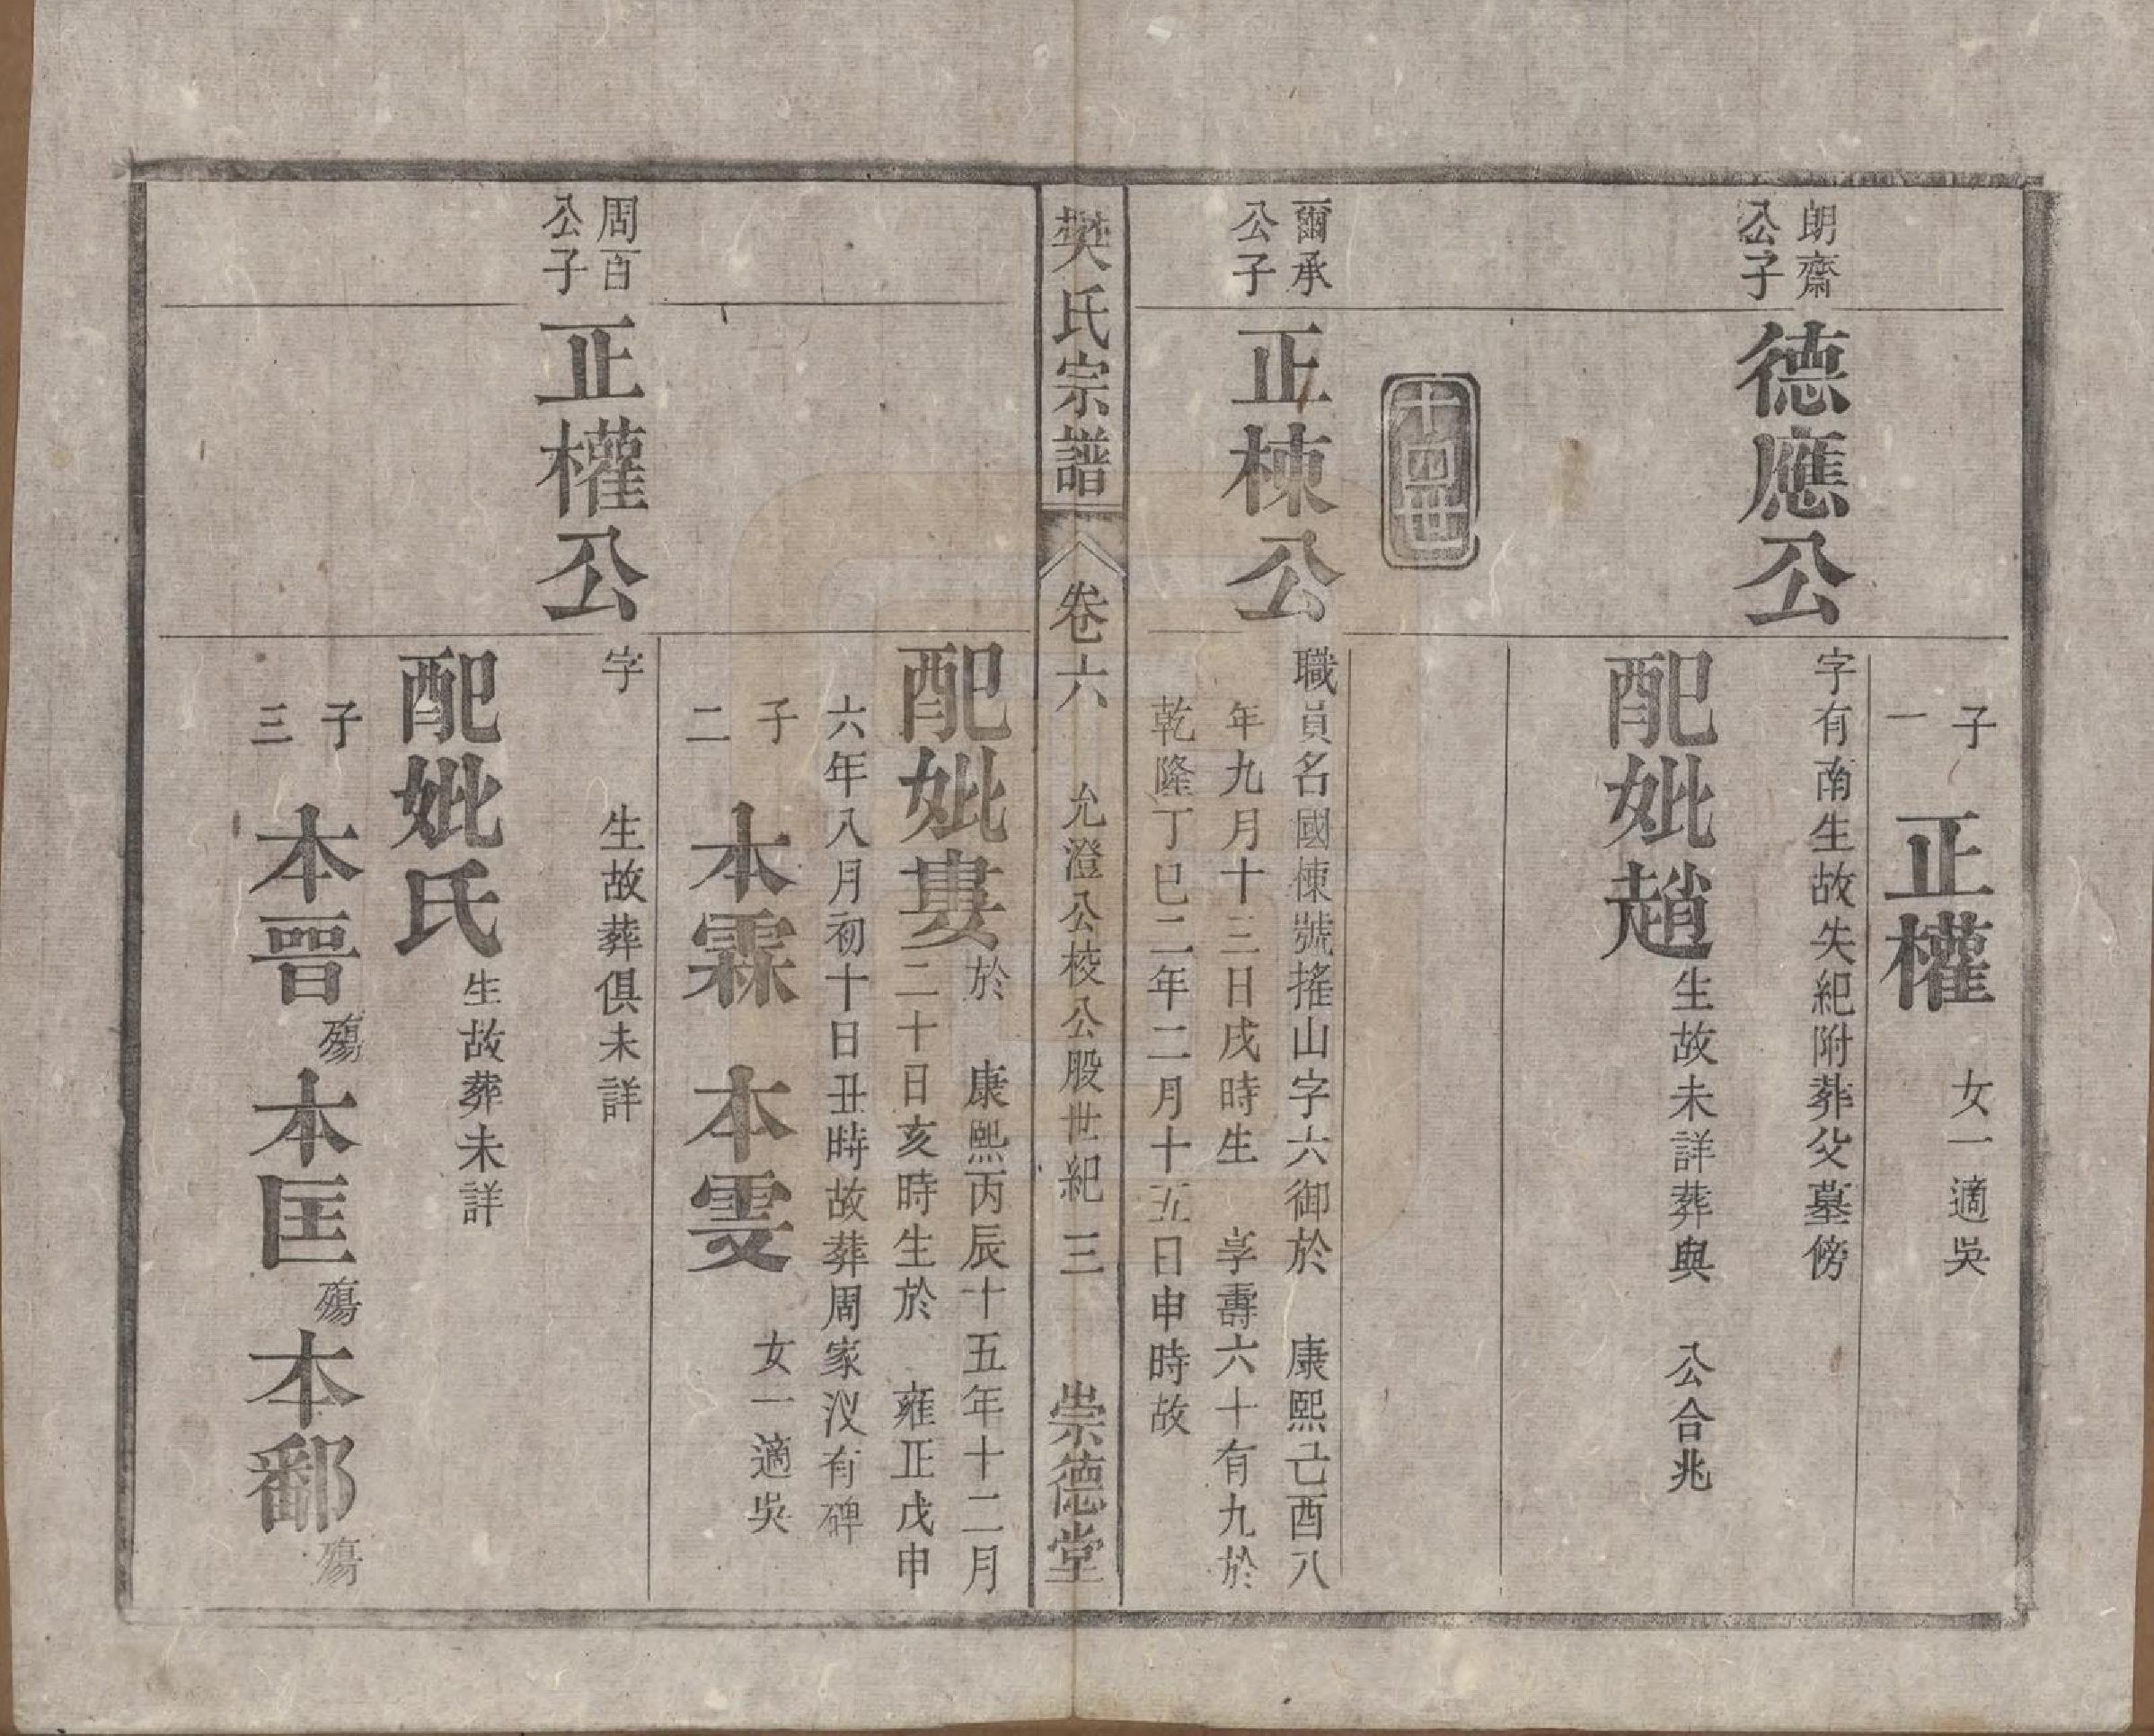 子一 正權 女一適吳
朗齋公子
德應公
字有南生故失紀附葬父墓傍
配妣趙 生故未詳葬與 公合兆
十四世
爾承公子
正棟公
職員名國棟號搖山字六御於 康熙己酉八
年九月十三日戌時生 享壽六十有九於
乾隆丁巳二年二月十五日申時故
樊氏宗譜 卷六 允澄公校公股世紀 三 崇德堂
配妣婁 於 康熙丙辰十五年十二月
二十日亥時生於 雍正戊申
六年八月初十日丑時故葬周家汊有碑
子二 本霖 本雯 女一適吳
周百公子
正權公
字 生故葬俱未詳
配妣氏 生故葬未詳
子三 本晉 殤 本匡 殤 本鄱 殤